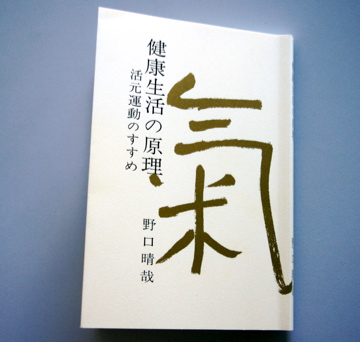 氣
健康生活の原理
活元運動のすすめ
野口晴哉